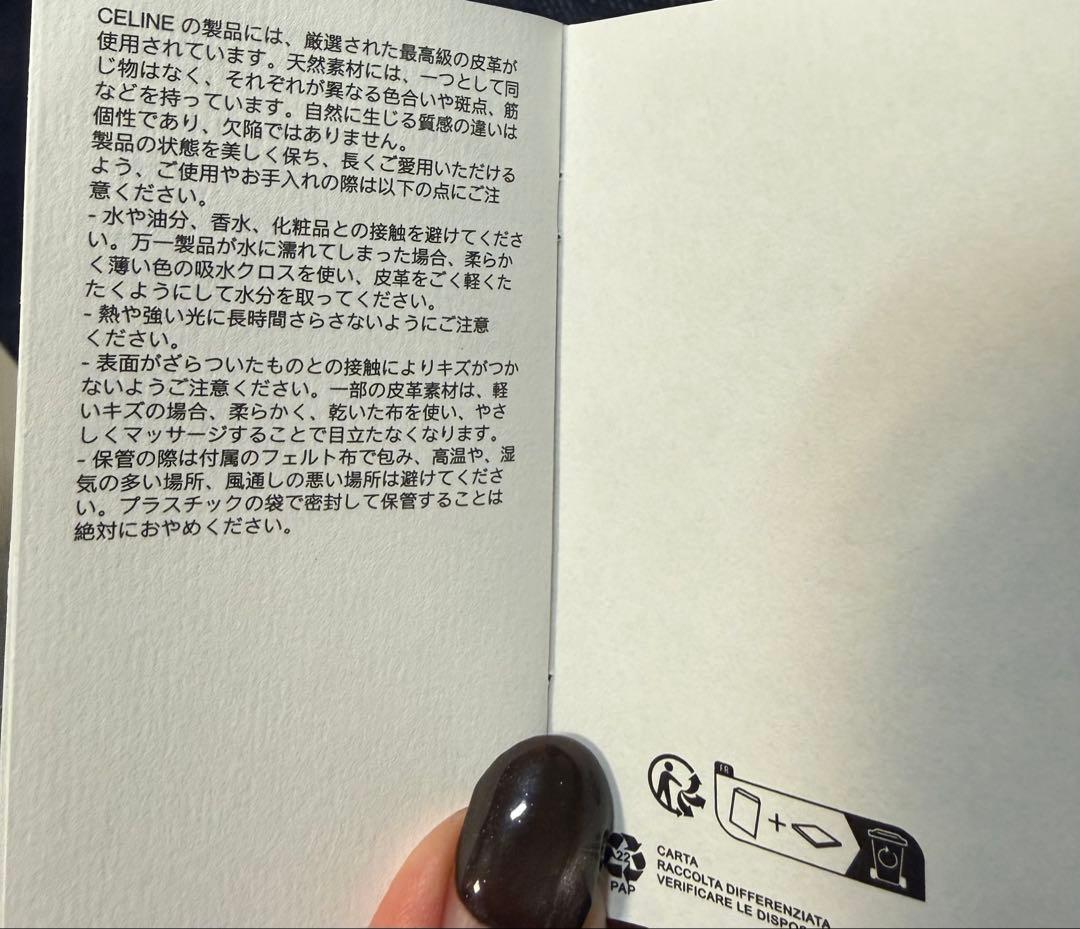 CELINE の製品には、厳選された最高級の皮革が
使用されています。天然素材には、一つとして同
じ物はなく、それぞれが異なる色合いや斑点、筋
などを持っています。自然に生じる質感の違いは
個性であり、欠陥ではありません。
製品の状態を美しく保ち、長くご愛用いただける
よう、ご使用やお手入れの際は以下の点にご注
意ください。
- 水や油分、香水、化粧品との接触を避けてくださ
い。万一製品が水に濡れてしまった場合、柔らか
く薄い色の吸水クロスを使い、皮革をごく軽くた
たくようにして水分を取ってください。
- 熱や強い光に長時間さらさないようにご注意
ください。
- 表面がざらついたものとの接触によりキズがつか
ないようご注意ください。一部の皮革素材は、軽
いキズの場合、柔らかく、乾いた布を使い、やさ
しくマッサージすることで目立たなくなります。
- 保管の際は付属のフェルト布で包み、高温や、湿
気の多い場所、風通しの悪い場所は避けてくださ
い。プラスチックの袋で密封して保管することは
絶対におやめください。
FR
22
PAP
CARTA
RACCOLTA DIFFERENZIATA
VERIFICARE LE